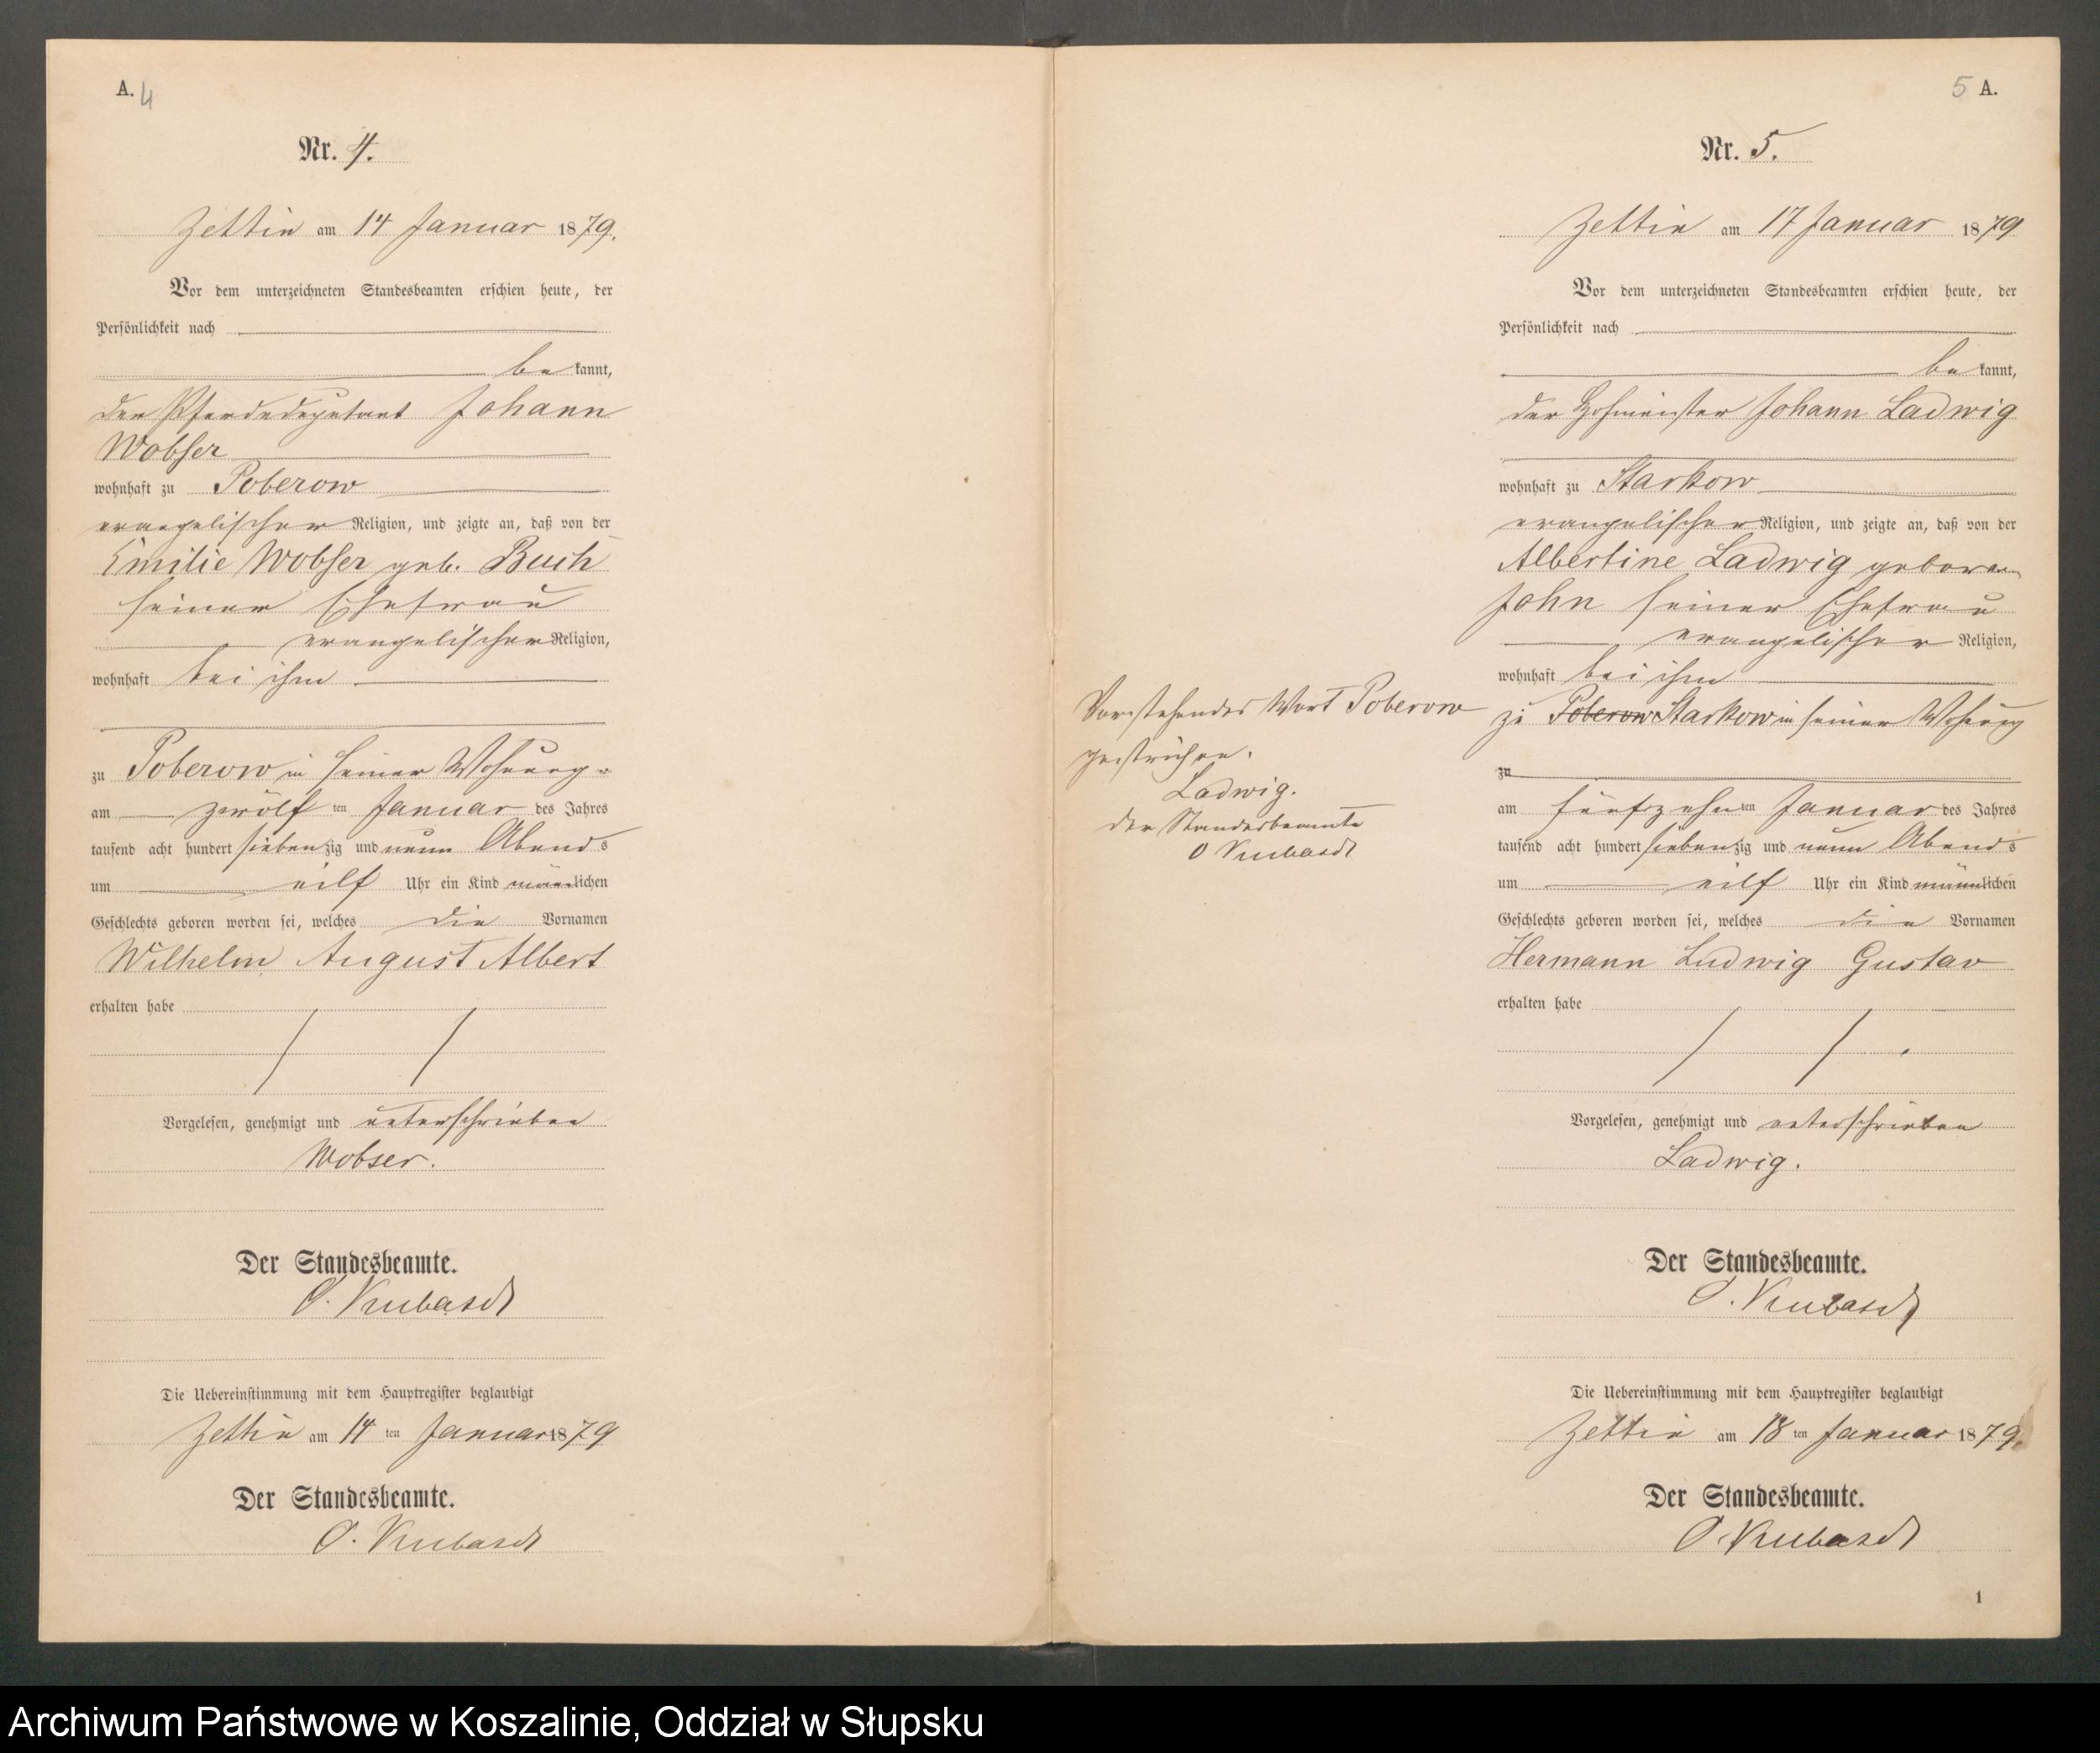 A. 4
Nr. 4.
Zettin am 14 Januar 1879.
Vor dem unterzeichneten Standesbeamten erschien heute, der
Persönlichkeit nach
be kannt,
der Pferdedeputant Johann
Wobser
wohnhaft zu Poberow
evangelischer Religion, und zeigte an, daß von der
Emilie Wobser geb. Buch
seiner Ehefrau
evangelischer Religion,
wohnhaft bei ihm
zu Poberow in seiner Wohnung
am zwölf ten Januar des Jahres
tausend acht hundert siebenzig und neun Abends
um eilf Uhr ein Kind männlichen
Geschlechts geboren worden sei, welches die Vornamen
Wilhelm August Albert
erhalten habe
Vorgelesen, genehmigt und unterschrieben
Wobser.
Der Standesbeamte.
O.
Die Uebereinstimmung mit dem Hauptregister beglaubigt
Zettin am 14 ten Januar 1879
Der Standesbeamte.
O.
5 A.
Nr. 5.
Zettin am 17 Januar 1879
Vor dem unterzeichneten Standesbeamten erschien heute, der
Persönlichkeit nach
be kannt,
der Hofmeister Johann Ladwig
wohnhaft zu Starkow
evangelischer Religion, und zeigte an, daß von der
Albertine Ladwig geboren
John seiner Ehefrau
evangelischer Religion,
wohnhaft bei ihm
zu Poberow Starkow in seiner Wohnung
zu
am fünfzehn ten Januar des Jahres
tausend acht hundert siebenzig und neun Abends
um eilf Uhr ein Kind männlichen
Geschlechts geboren worden sei, welches die Vornamen
Hermann Ludwig Gustav
erhalten habe
Vorgelesen, genehmigt und unterschrieben
Ladwig.
Der Standesbeamte.
O.
Die Uebereinstimmung mit dem Hauptregister beglaubigt
Zettin am 18 ten Januar 1879.
Der Standesbeamte.
O
1
Vorstehendes Wort Poberow
gestrichen.
Ladwig.
der Standesbeamte
O
Archiwum Państwowe w Koszalinie, Oddział w Słupsku